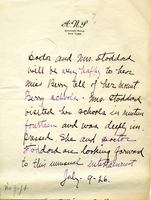 Doctor and Mrs. Stoddard
will be very happy to hear
Miss Berry tell of her Mount
Berry schools. Mrs. Stoddard
visited the schools in
fourteen and was deeply im-
pressed. She and Doctor
Stoddard are looking forward
to this unusual entertainment
July - 9 - 26.